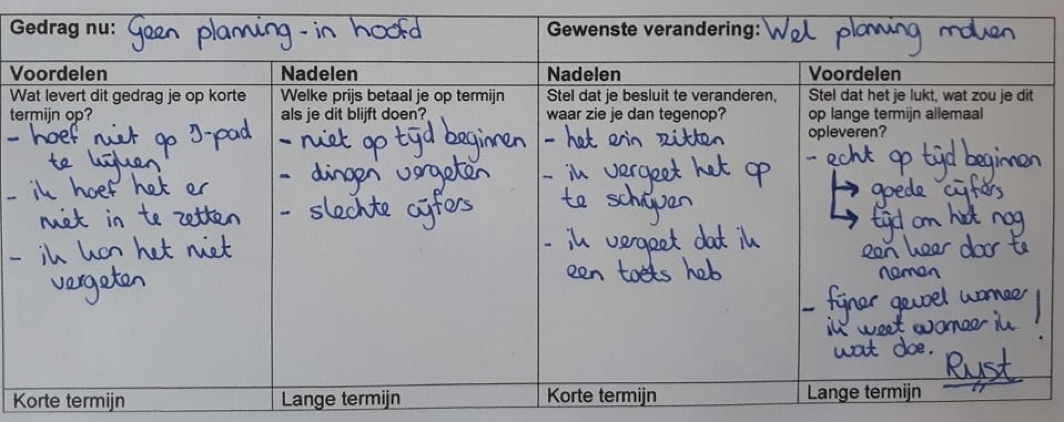 Gedrag nu: Geen planning - in hoofd
Gewenste verandering: Wel planning maken
Voordelen
Wat levert dit gedrag je op korte
termijn op?
- hoef niet op I-pad
te kijken
- ik hoef het er
niet in te zetten
- ik kan het niet
vergeten
Korte termijn
Nadelen
Welke prijs betaal je op termijn
als je dit blijft doen?
- niet op tijd beginnen
- dingen vergeten
- slechte cijfers
Lange termijn
Nadelen
Stel dat je besluit te veranderen,
waar zie je dan tegenop?
- het erin zetten
- ik vergeet het op
te schrijven
- ik vergeet dat ik
een toets heb
Korte termijn
Voordelen
Stel dat het je lukt, wat zou je dit
op lange termijn allemaal
opleveren?
- echt op tijd beginnen
↳ goede cijfers
↳ tijd om het nog
een keer door te
nemen
- fijner gevoel wanneer
ik weet wanneer ik
wat doe. !
Rust
Lange termijn